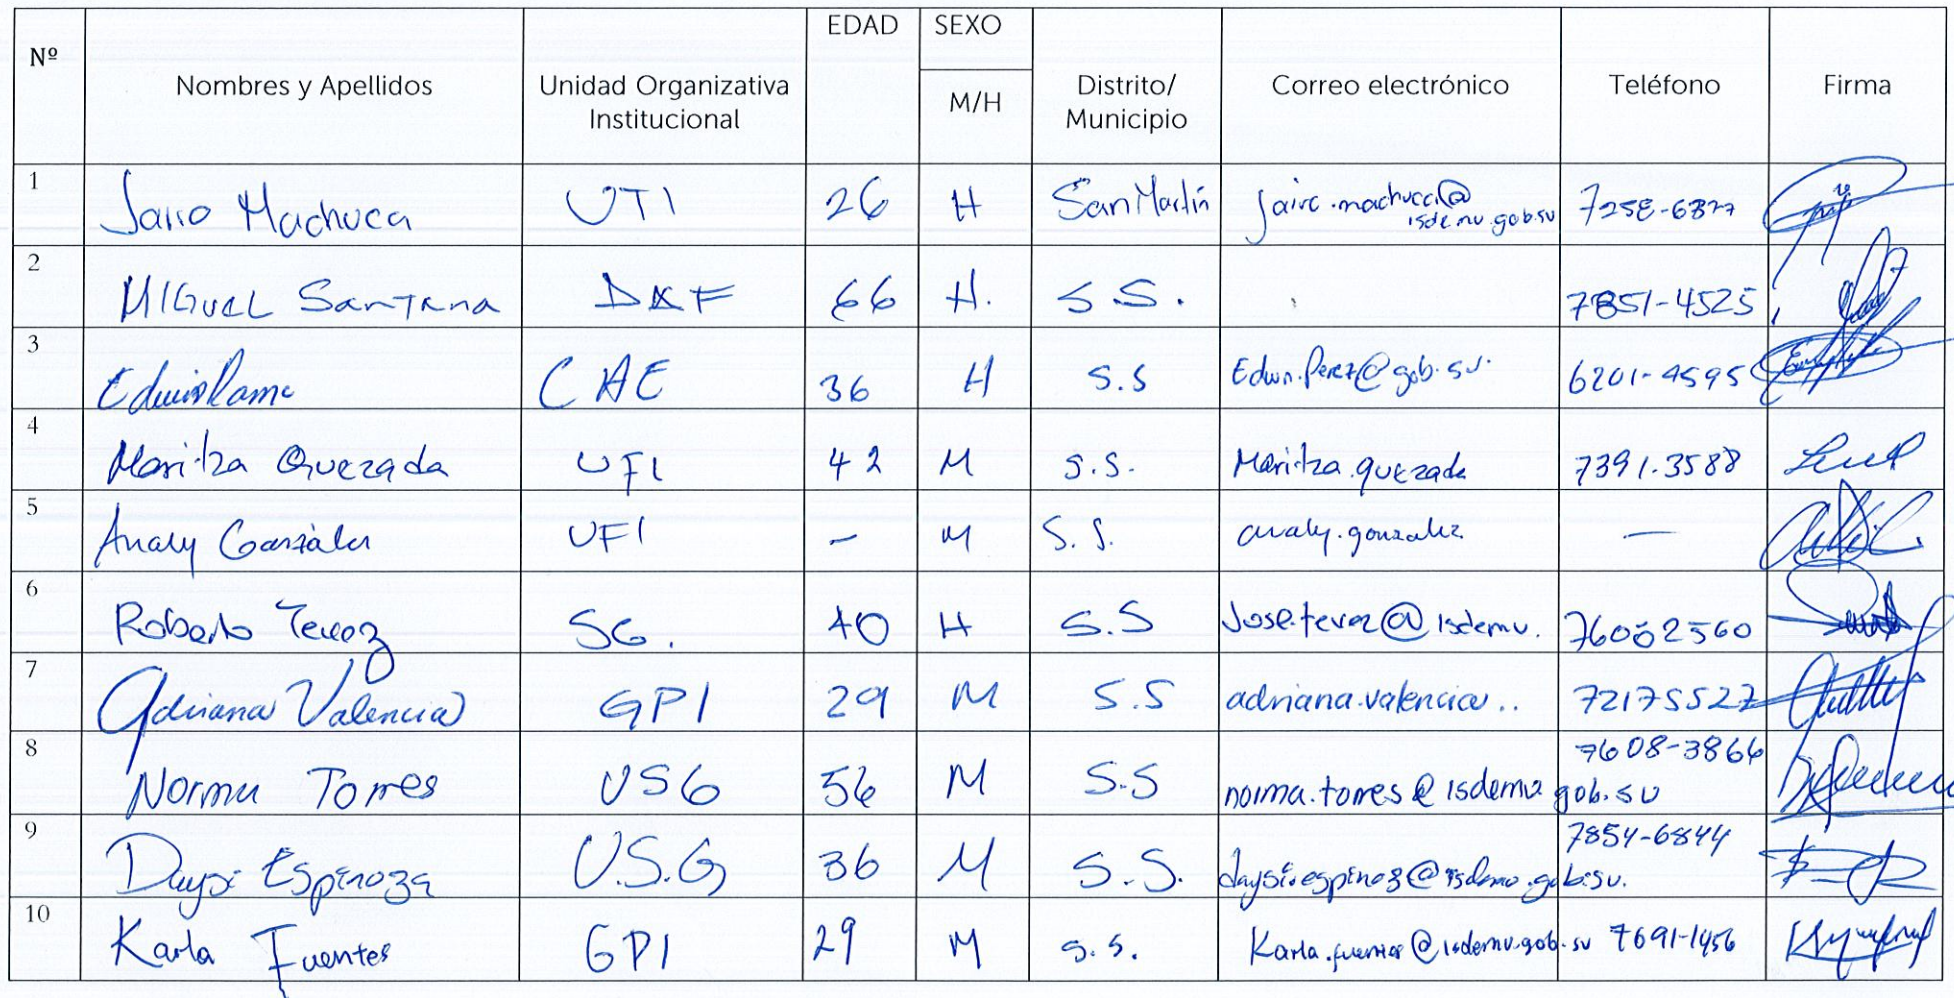 Nº Nombres y Apellidos Unidad Organizativa Institucional EDAD SEXO M/H Distrito/ Municipio Correo electrónico Teléfono Firma
1 Jairo Machuca UTI 26 H San Martín jairo.machuca@isdemu.gob.sv 7258-6827
2 MIGUEL Santana DAF 66 H. S S. 7851-4525
3 Edwin CAE 36 H S.S Edwin.Perez@gob.sv. 6201-4595
4 Maritza Quezada UFI 42 M S.S. Maritza.quezada 7391-3588
5 Analy González UFI - M S.S. analy.gonzalez —
6 Roberto Terez SG. 40 H S.S Jose.terez@isdemu. 76002560
7 Adriana Valencia GPI 29 M S.S adriana.valencia.. 72175527
8 Norma Torres USG 56 M S.S norma.torres@isdemu gob.sv 7608-3866
9 Daysi Espinoza U.S.G 36 M S.S. daysi.espinoza@isdemu.gob.sv. 7854-6844
10 Karla Fuentes GPI 29 M S.S. Karla.fuentes@isdemu.gob.sv 7691-1456